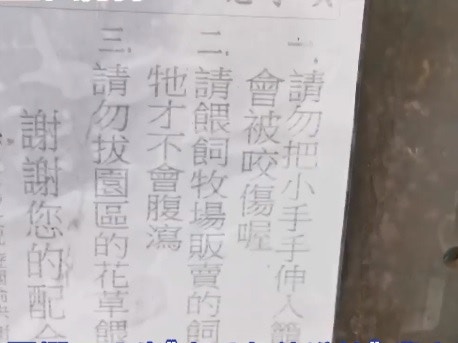 一.請勿把小手手伸入
會被咬傷喔
二.請餵飼牧場販賣的飼
牠才不會腹瀉
三.請勿拔園區的花草餵
謝謝您的配合